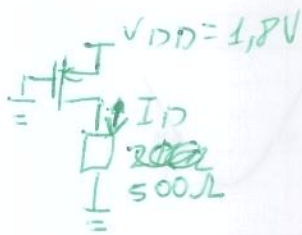 VDD=1,8V
ID
500Ω